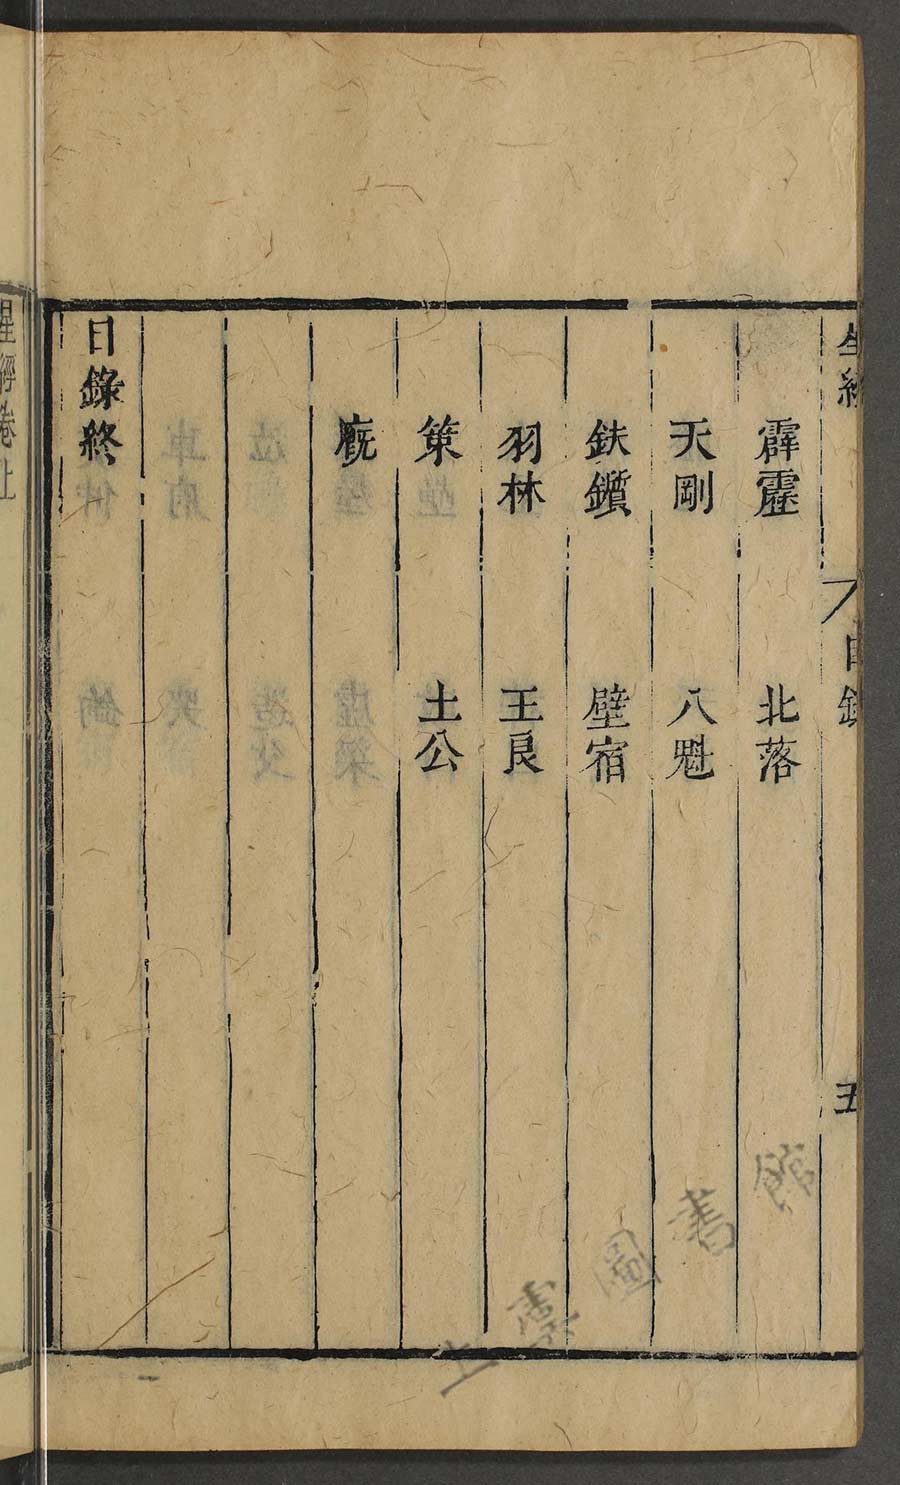 霹靂 北落
天剛 八魁
鈇鑕 壁宿
羽林 王良
策 土公
廐
目錄終
目錄
五
圖書館
星經卷上